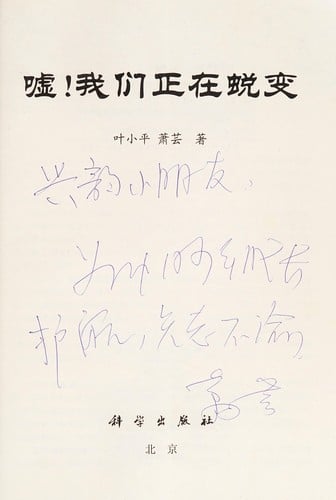 嘘!我们正在蜕变
叶小平 萧芸 著
兴韵小朋友,
为你的成长
护航,矢志不渝。
萧芸
科学出版社
北京